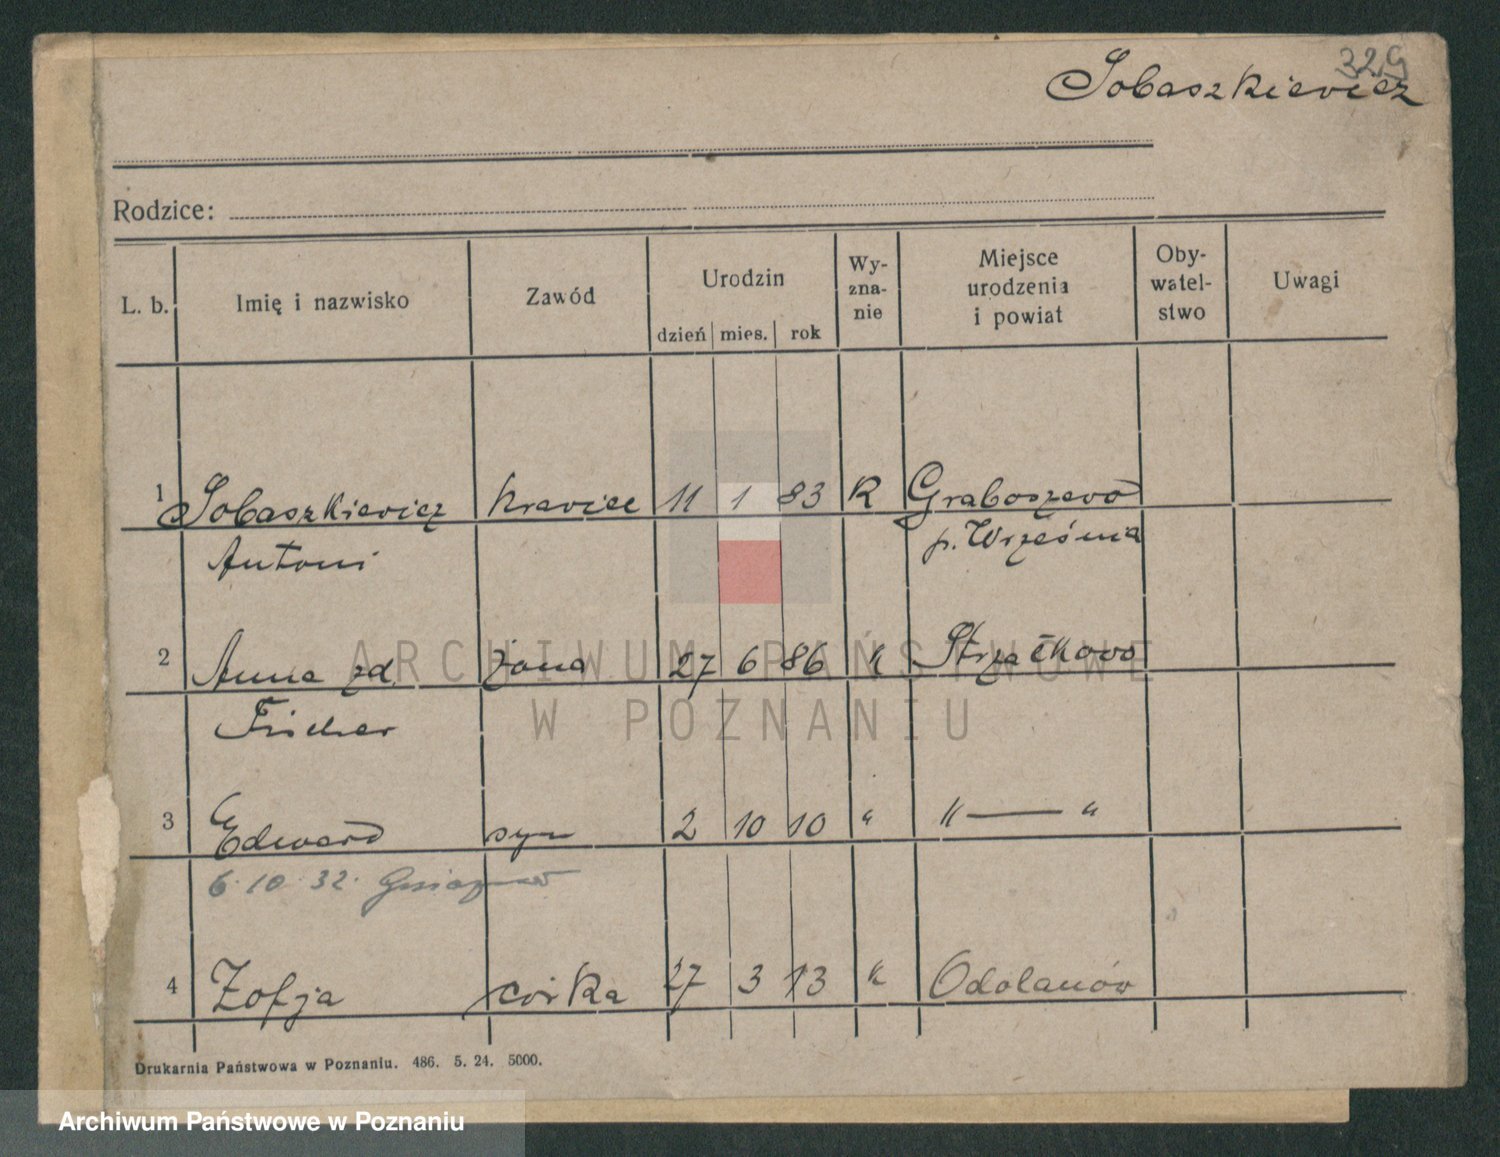 329
Sobaszkiewicz
Rodzice:
L. b. Imię i nazwisko Zawód Urodzin dzień mies. rok Wy-zna-nie Miejsce urodzenia i powiat Oby-watel-stwo Uwagi
1 Sobaszkiewicz krawiec 11 1 83 K Graboszewo
Antoni p. Września
2 Anna zd. żona 27 6 86 K Strzałkowo
Fischer
3 Edward syn 2 10 10 " " — "
6.10.32.
4 Zofja córka 27 3 13 K Odolanów
Drukarnia Państwowa w Poznaniu. 486. 5. 24. 5000.
ARCHIWUM PAŃSTWOWE
W POZNANIU
Archiwum Państwowe w Poznaniu